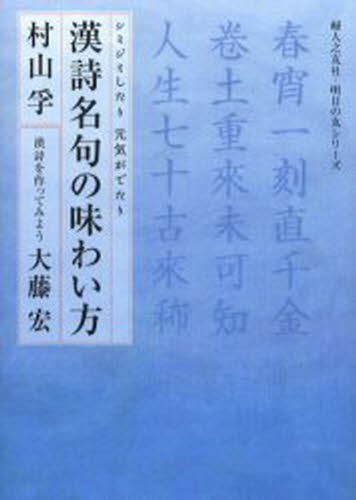 婦人之友社 明日の友シリーズ
春宵一刻直千金
卷土重來未可知
人生七十古來稀
シミジミしたり 元気がでたり
漢詩名句の味わい方
村山孚
漢詩を作ってみよう 大藤宏